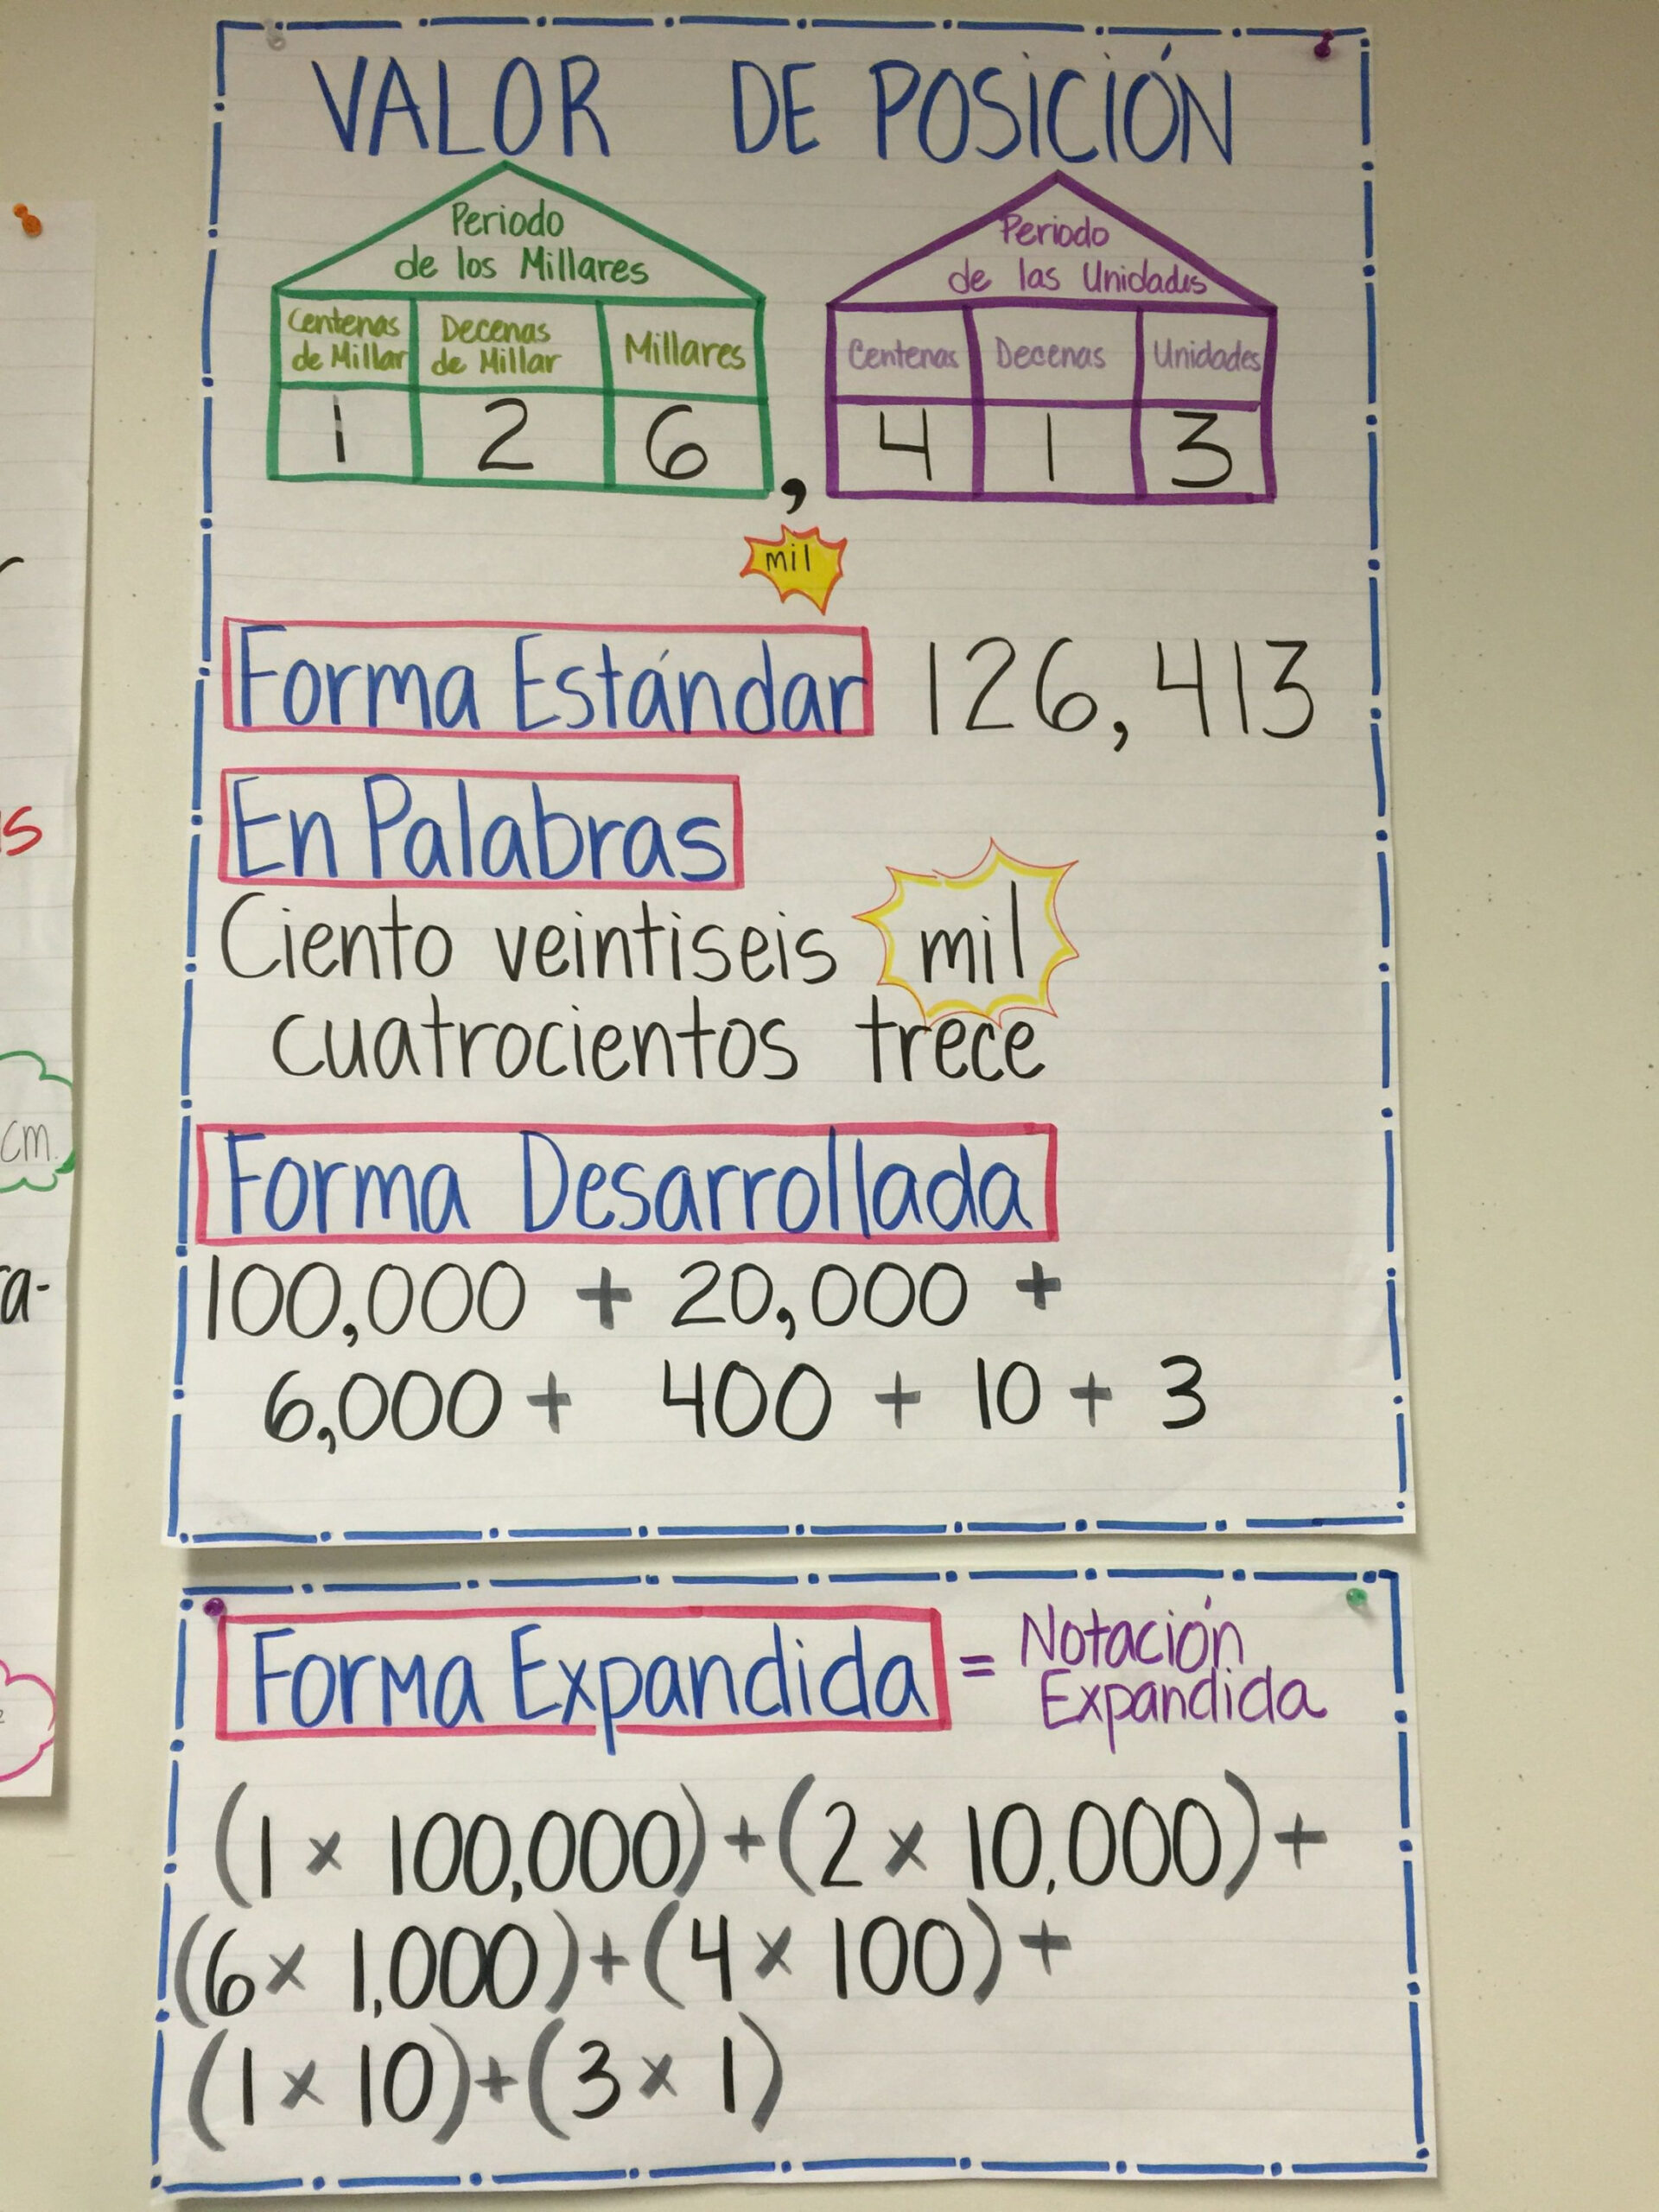 VALOR DE POSICIÓN
Periodo
de los Millares
Centenas de Millar
Decenas de Millar
Millares
1 2 6
,
mil
Periodo
de las Unidades
Centenas Decenas Unidades
4 1 3
Forma Estándar 126,413
En Palabras
Ciento veintiseis mil
cuatrocientos trece
Forma Desarrollada
100,000 + 20,000 +
6,000 + 400 + 10 + 3
Forma Expandida = Notación
Expandida
(1 x 100,000) + (2 x 10,000) +
(6 x 1,000) + (4 x 100) +
(1 x 10) + (3 x 1)
s
cm.
ra-